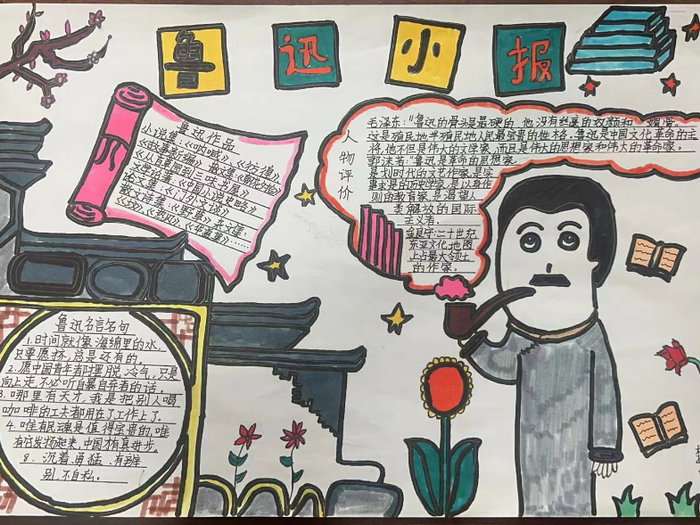 鲁迅小报
鲁迅作品
小说集：《呐喊》、《彷徨》
《故事新编》
散文诗集：《野草》
人物评价
毛泽东："鲁迅的骨头是最硬的，他没有丝毫的奴颜和媚骨
这是殖民地半殖民地人民最宝贵的性格。鲁迅是中国文化革命的主
将，他不但是伟大的文学家，而且是伟大的思想家和伟大的革命家。
郭沫若："鲁迅是革命的思想家，
是划时代的文艺作家，是实
事求是的历史学家，是以身作
则的教育家，是渴望人
类解放的国际
主义者。
金良守：二十世纪
东亚文化地图
上占最大领土
的作家。
鲁迅名言名句
1.时间就像海绵里的水，
只要愿挤，总是还有的。
2.愿中国青年都摆脱冷气，只是
向上走，不必听自暴自弃者的话。
3.哪里有天才，我是把别人喝
咖啡的工夫都用在了工作上了。
4.唯有民魂是值得宝贵的，唯
有他发扬起来，中国才有真进步。
沉着、勇猛、有辨
别、不自私。